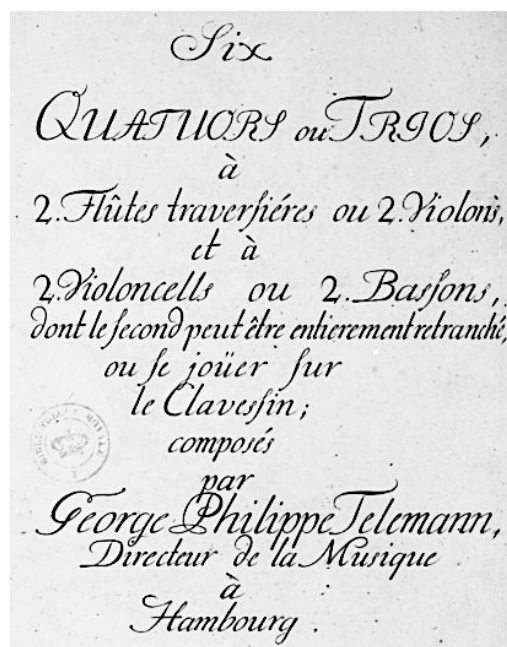 Six
QUATUORS ou TRIOS,
à
2. Flûtes traversiéres ou 2. Violons,
et à
2. Violoncells ou 2. Bassons,
dont le second peut être entierement retranché,
ou se joüer sur
le Clavessin;
composés
par
George Philippe Telemann,
Directeur de la Musique
à
Hambourg.